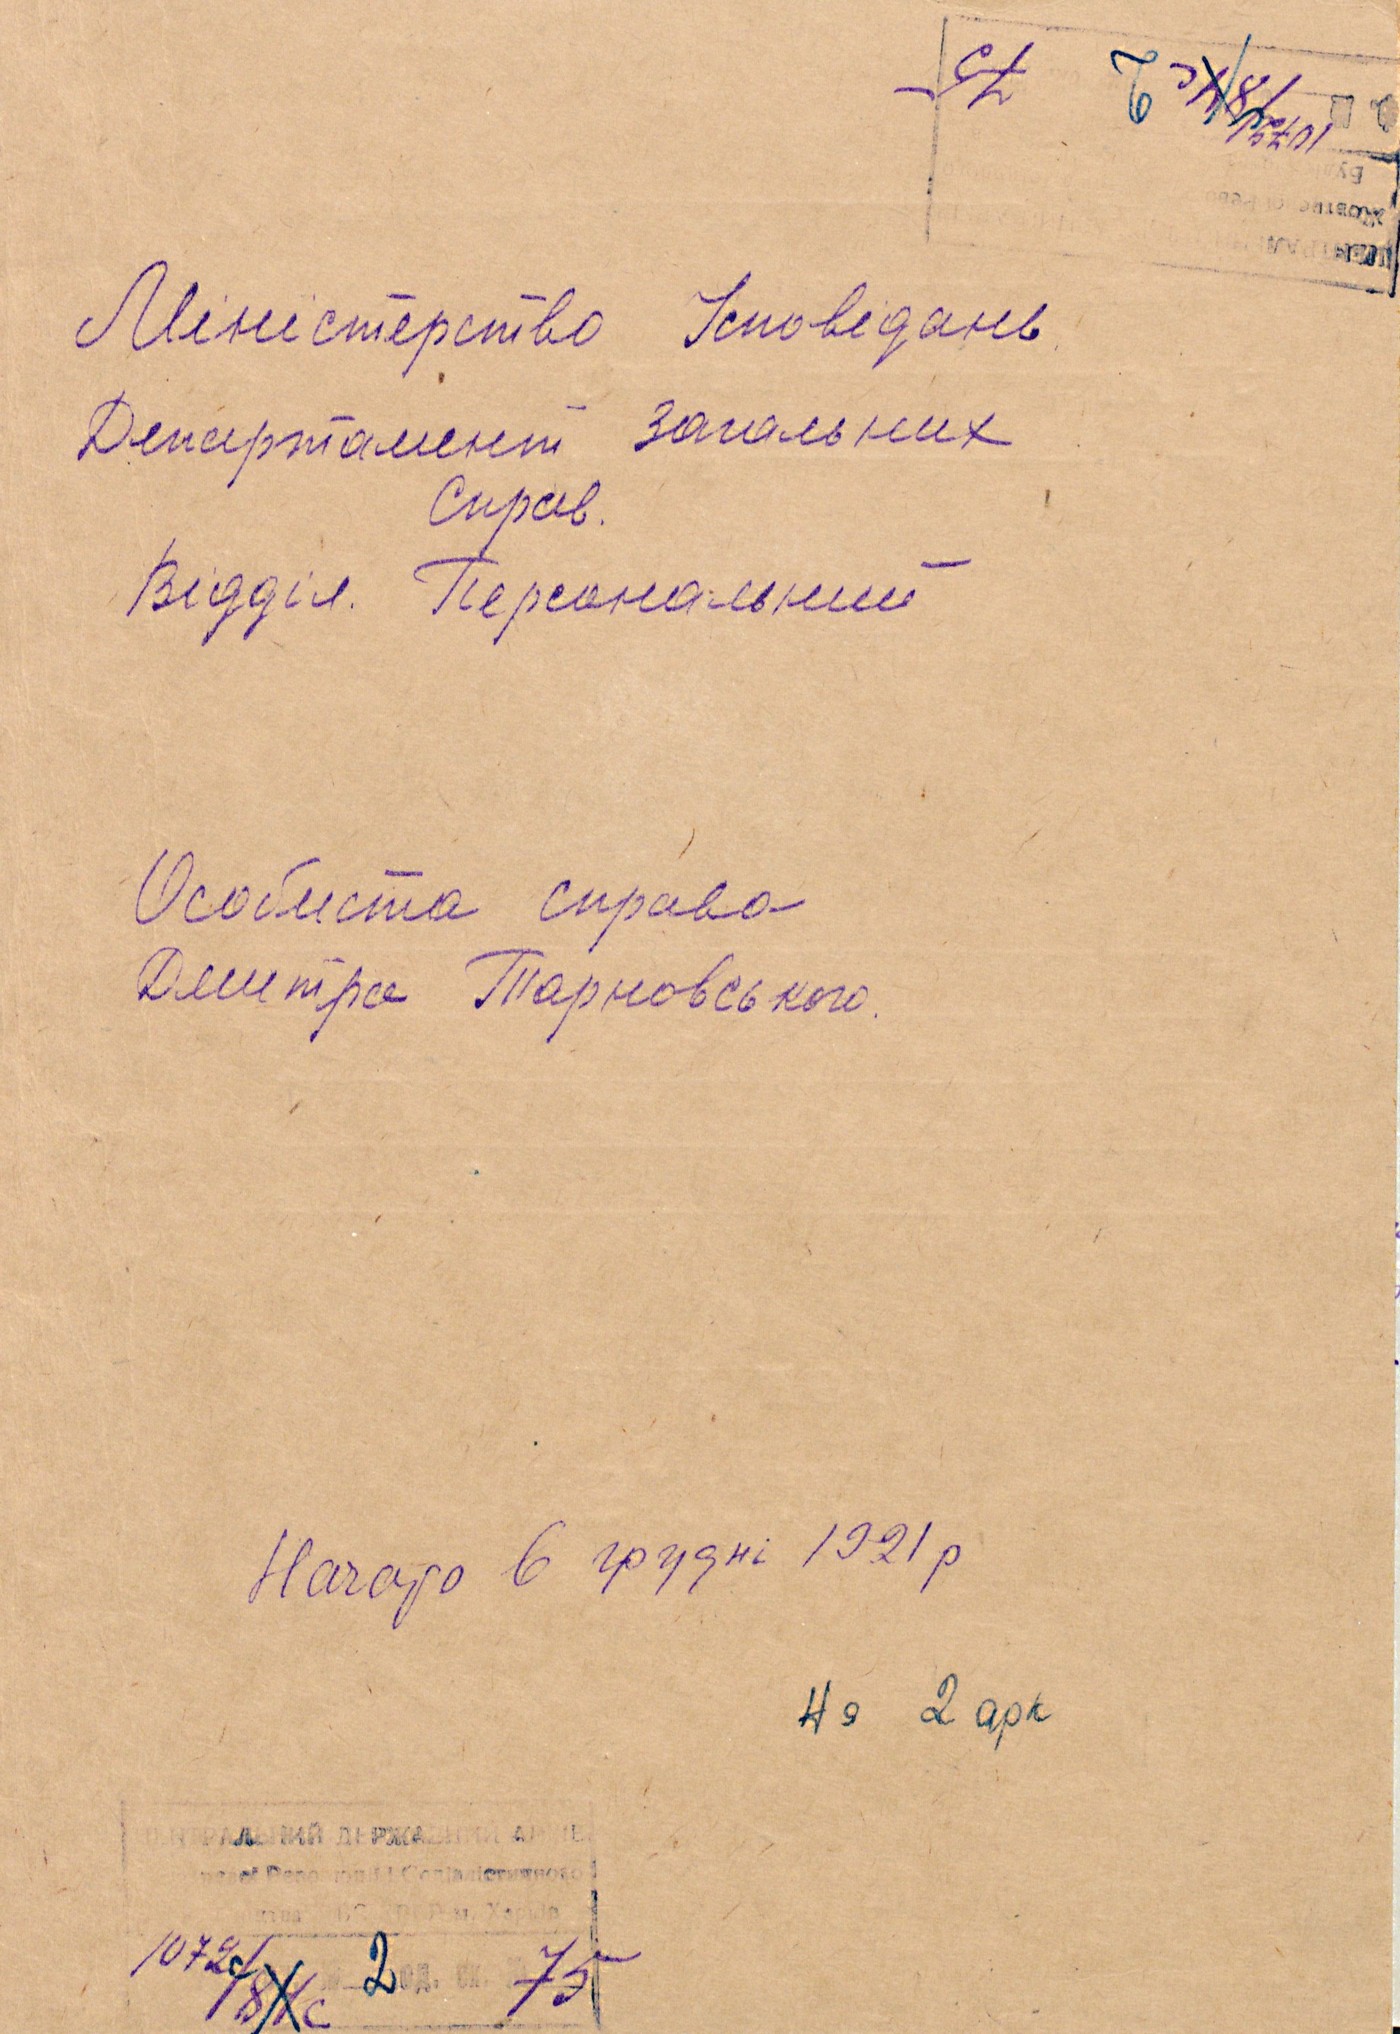 75 2
Міністерство Ісповідань
Департамент Загальних
Справ.
Відділ. Персональний
Особиста справа
Дмитра Тарновського.
Начато 6 грудні 1921 р
На 2 арк
ЦЕНТРАЛЬНИЙ ДЕРЖАВНИЙ АРХІВ
Жовтневої Революції і Соціалістичного
м. Харків
1072с/ 2 од. зб. 75